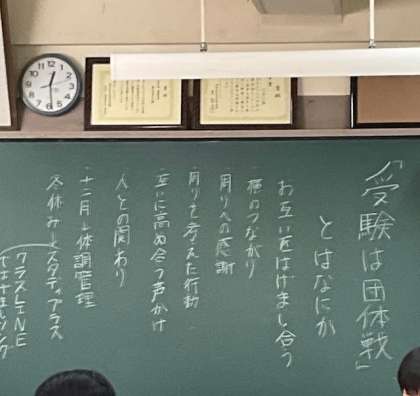 「受験は団体戦」
とはなにか
お互い匠はげまし合う
横のつながり
周りへの感謝
周りを考えた行動
互いに高め合う声かけ
人との関わり
十二月→体調管理
冬休み→スタディプラス
クラスLINE
ではげましソング